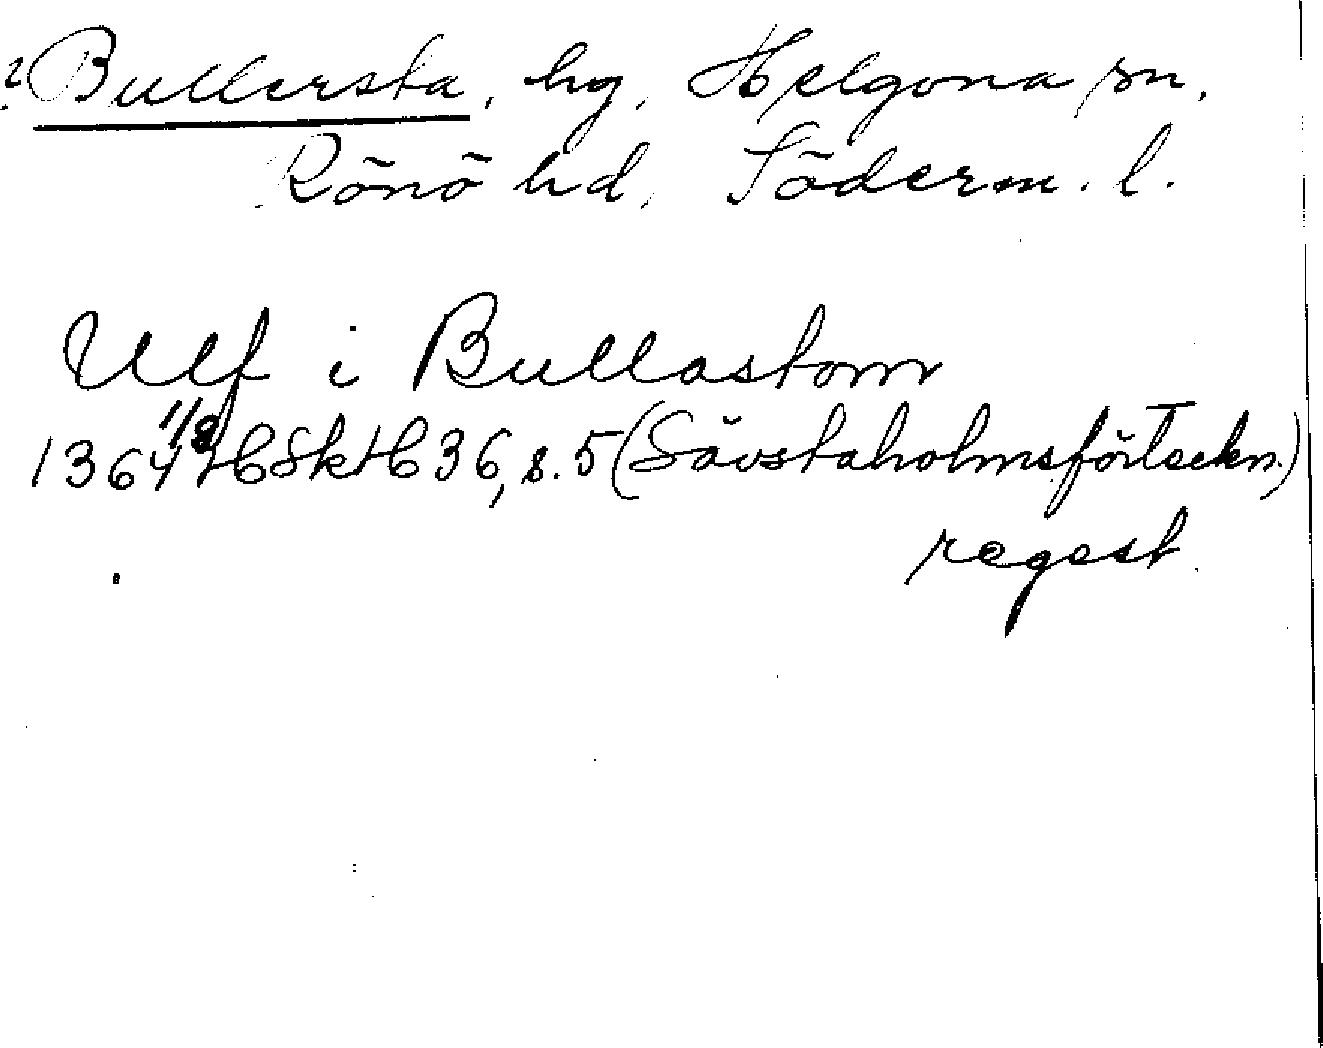 ? Bullersta, hg, Helgona sn,
Rönö hd, Söderm. l.
Ulf i Bullastom
1364 1/8 HSkH 36, s. 5 (Sävstaholmsförteckn.)
regest.